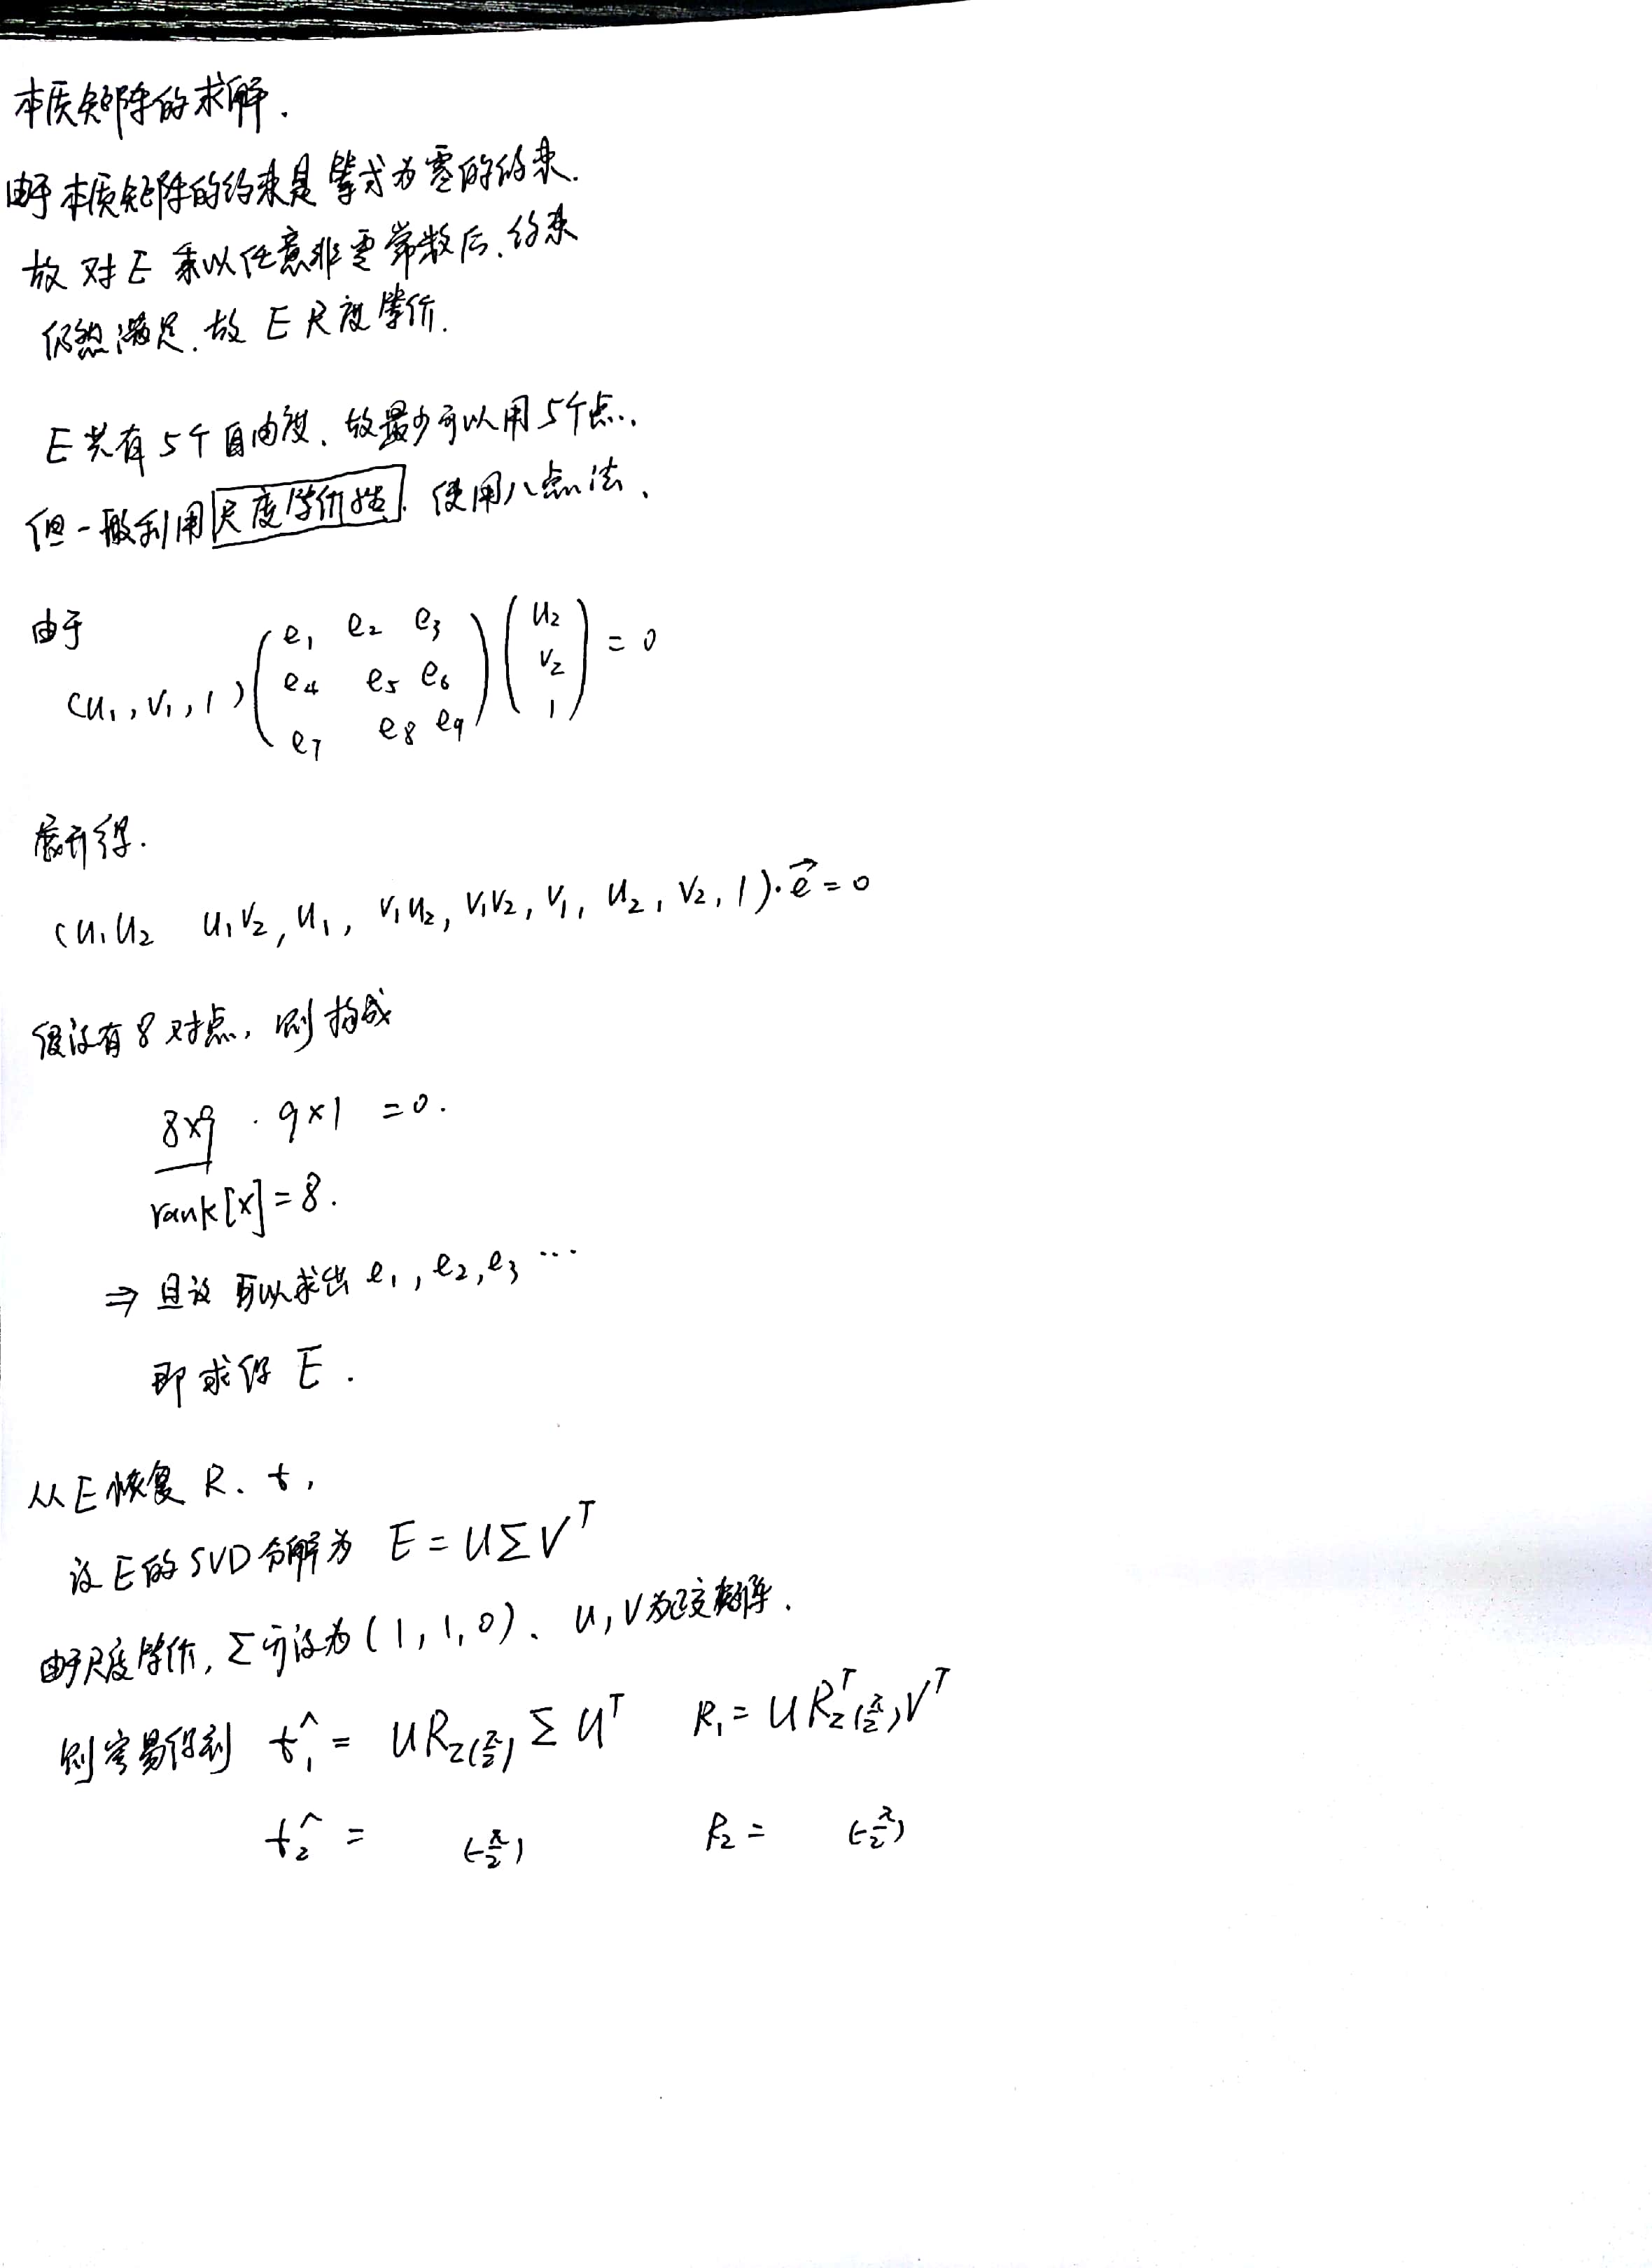 本质矩阵的求解.
由于本质矩阵的约束是等式为零的约束.
故对E乘以任意非零常数后,约束
仍然满足.故E尺度等价.
E共有5个自由度、故最少可以用5个点.
但一般利用尺度等价性.使用八点法、
由于
(u₁,v₁,1) (e₁ e₂ e₃ e₄ e₅ e₆ e₇ e₈ e₉) (u₂ v₂ 1) = 0
展开得.
(u₁u₂ u₁v₂, u₁, v₁u₂, v₁v₂, v₁, u₂, v₂, 1)·e⃗ = 0
假设有8对点, 则构成
8×9 · 9×1 = 0.
rank[x] = 8.
⇒ 可以求出 e₁, e₂, e₃ ···
即求得 E.
从E恢复 R、t,
设E的SVD分解为 E = UΣVᵀ
由于尺度等价, Σ可设为(1, 1, 0)、U, V为正交矩阵.
则容易得到 t₁^ = U R_Z(π/2) Σ Uᵀ R₁ = U R_Zᵀ(π/2) Vᵀ
t₂^ = (-π/2) R₂ = (-π/2)